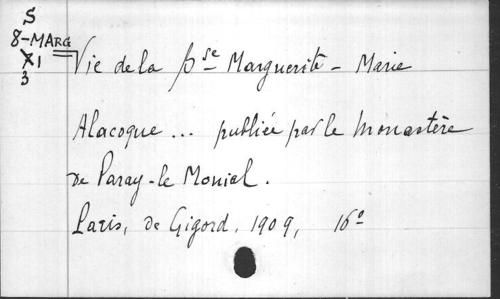 S
8-MARG
X1
3
Vie de la Bse Marguerite-Marie
Alacoque ... publiée par le Monastère
de Paray-le Monial.
Paris, de Gigord, 1909, 16°